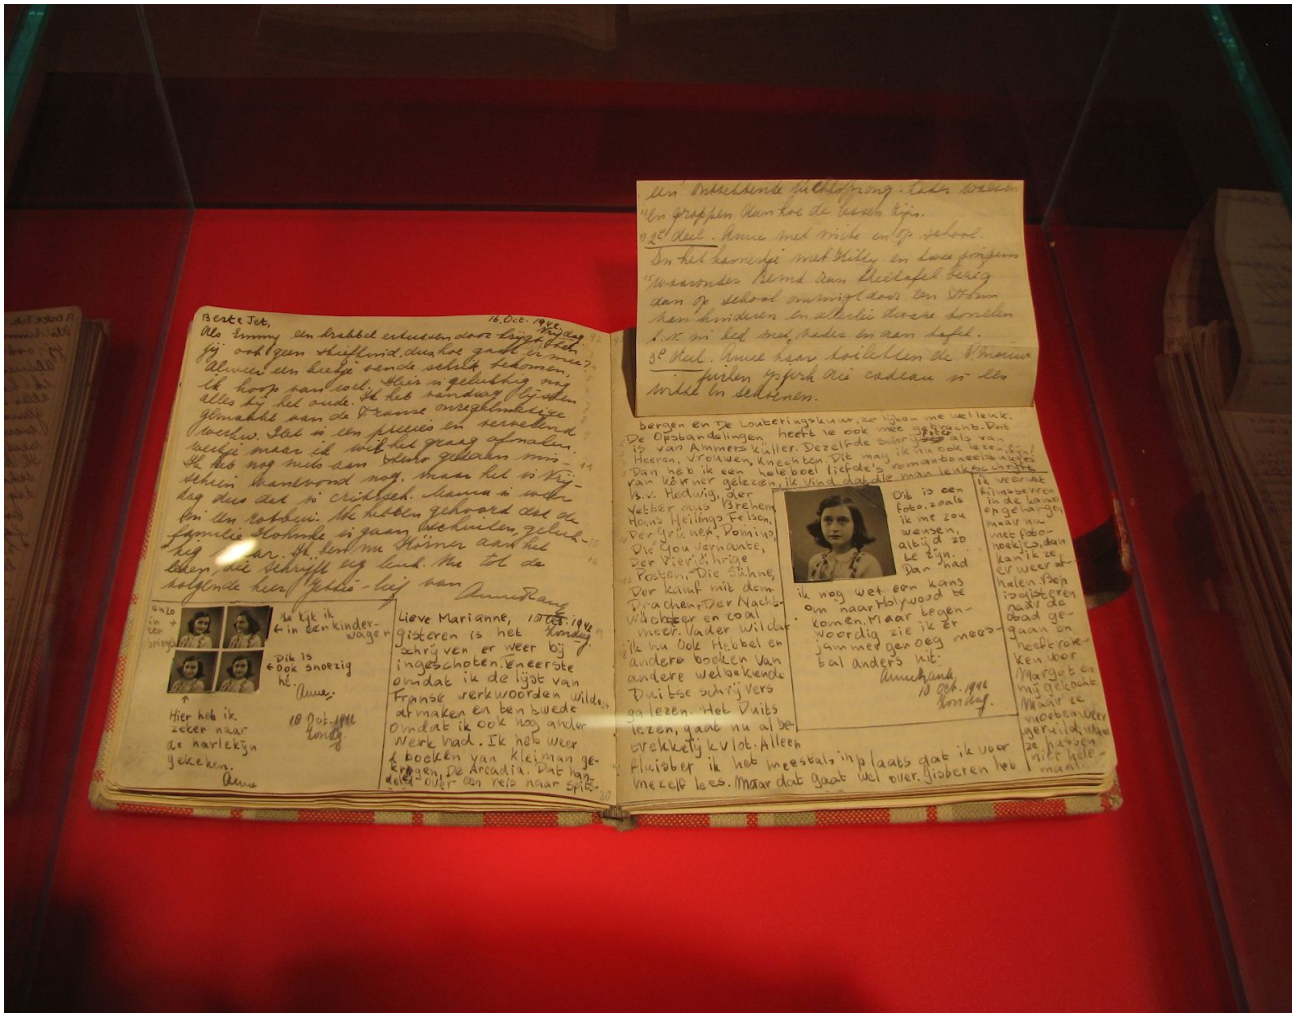 Beste Jet,
16. Oct. 1942
Vrijdag
Als Emmy een krabbel ertusven door krijgt dan
jij ook geen stiefkind, dus hoe gaat er mee?
Alweer een beetje van de schrik bekomen,
ik hoop van wel. Hier is gelukkig nog
alles bij het oude. Ik heb vandaag lijsten
gemaakt van de Franse onregelmatige
werkw. Dat is een precies en vervelend
werkje maar ik wil het graag afmaken.
Ik heb nog niets aan steno gedaan mis-
schien vanavond nog, maar het is Vrij-
dag dus dat is critisch. Mama is weer
in een rotbui. We hebben gehoord dat de
familie is gaan schuilen, geluk-
kig maar. Ik ben nu Körner aan het
lezen, die schrijft erg leuk. Nu tot de
volgende keer Jettie-lief van
Anne Frank
enzo
in +
een
snoezig
Nu kijk ik
← in een kinder-
wagen
Dit is
← ook snoezig
hè.
Anne.
↑
Hier heb ik
zeker naar
de harlekijn
gekeken.
Anne
18 Oct. 1942
Zondag
Lieve Marianne, 18 Oct. 1942
Zondag.
gisteren is het
schrijven er weer bij
ingeschoten. Teneerste
omdat ik de lijst van
Franse werkwoorden wilde
afmaken en ten twede
omdat ik ook nog ander
werk had. Ik heb weer
2 boeken van Kleiman ge-
kregen, De Arcadia. Dat han-
deld over een reis naar Spits-
een lichtsprong. Later
En grappen. dan hoe de lessen zijn.
2e deel. Anne met visite en op school.
In het kamertje met Kitty en twee jongens
waaronder Bernd aan theetafel bezig
dan op school omringd door een
kinderen en allerlei diverse tonelen
b.v. in bed met vader en aan tafel.
3e deel. Anne haar toiletten de 8 nieuwe
jurken die cadeau is en
witte en schoenen.
bergen en De Louteringskuur, ze lijken me wel leuk.
De Opstandelingen heeft ie ook mee gebracht. Dit
is van Ammers Küller. Dezelfde schrijfster als van
Heeren, Vrouwen, Knechten. Dit mag ik nu ook lezen, fijn!
Dan heb ik een heleboel liefde's romantoneelstukjes
van Körner gelezen, ik vind dat die man leuk schrijft
B.v. Hedwig, der
Vetter aus Bremen,
Hans Heilings Felsen,
Der Grüner Domino,
Die Gouvernante,
Der Vierjährige
Posten, Die Sühne,
Der Kampf mit dem
Drachen, Der Nacht-
wächter en zoal
meer. Vader wil dat
ik nu ook Hebbel en
andere boeken van
andere welbekende
Duitse schrijvers
ga lezen. Het Duits
lezen, gaat nu al be-
trekkelijk vlot. Alleen
fluister ik het meestal inplaats dat ik voor
mezelf lees. Maar dat gaat wel over. gisteren heb
Dit is een
foto, zoals
ik me zou
wensen,
altijd zo
te zijn.
Dan had
ik nog wel een kans
om naar Holywood te
komen. Maar tegen-
woordig zie ik er
jammer genoeg mees-
tal anders uit.
Annefrank.
18 Oct. 1942
Zondag.
ik weer wat
filmsterren
in de kamer
opgehangen,
maar nu
met foto-
hoekjes, dan
kan ik ze
er weer af
halen. Bep
is gisteren
naar de
stad ge-
gaan en
heeft rok-
ken voor
Margot en
mij gekocht
Maar ze
moeten weer
geruild, want
ze passen
niet hele-
maal.